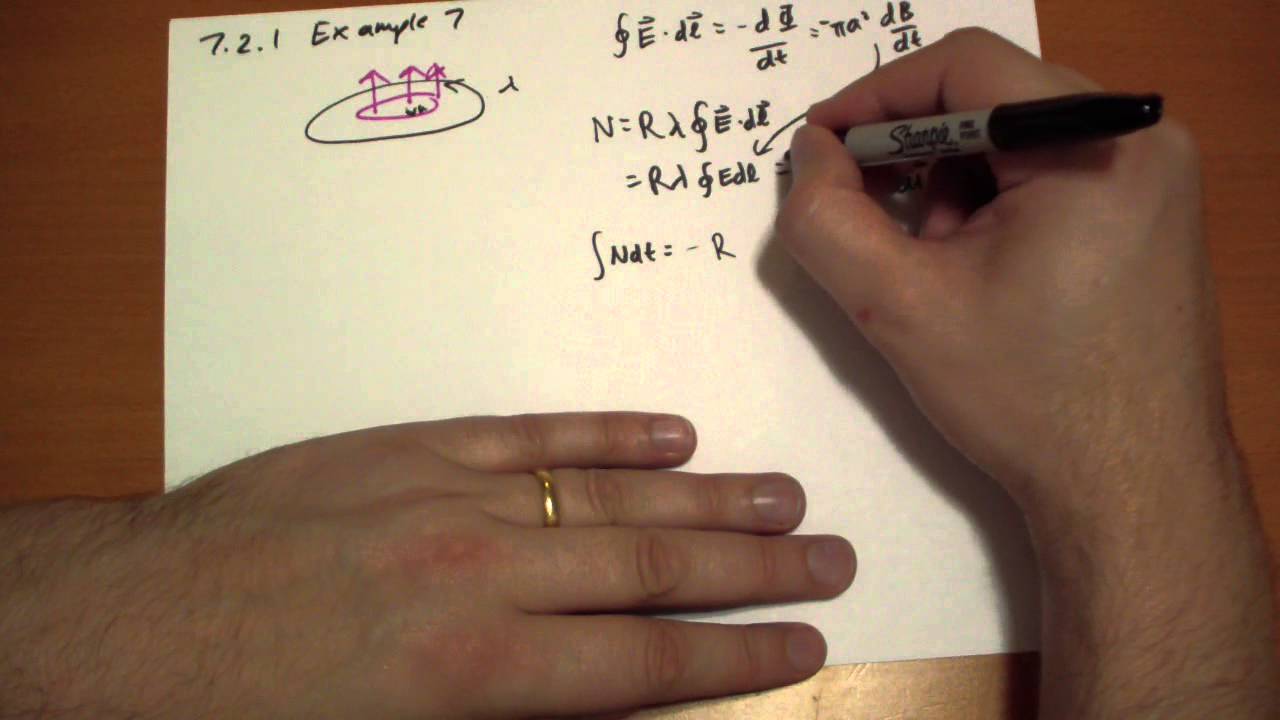 7.2.1 Example 7
λ
∮E⃗·dl⃗ = -dΦ/dt = -πa² dB/dt
N = Rλ∮E⃗·dl⃗
= Rλ∮Edl =
∫Ndt = - R
Sharpie